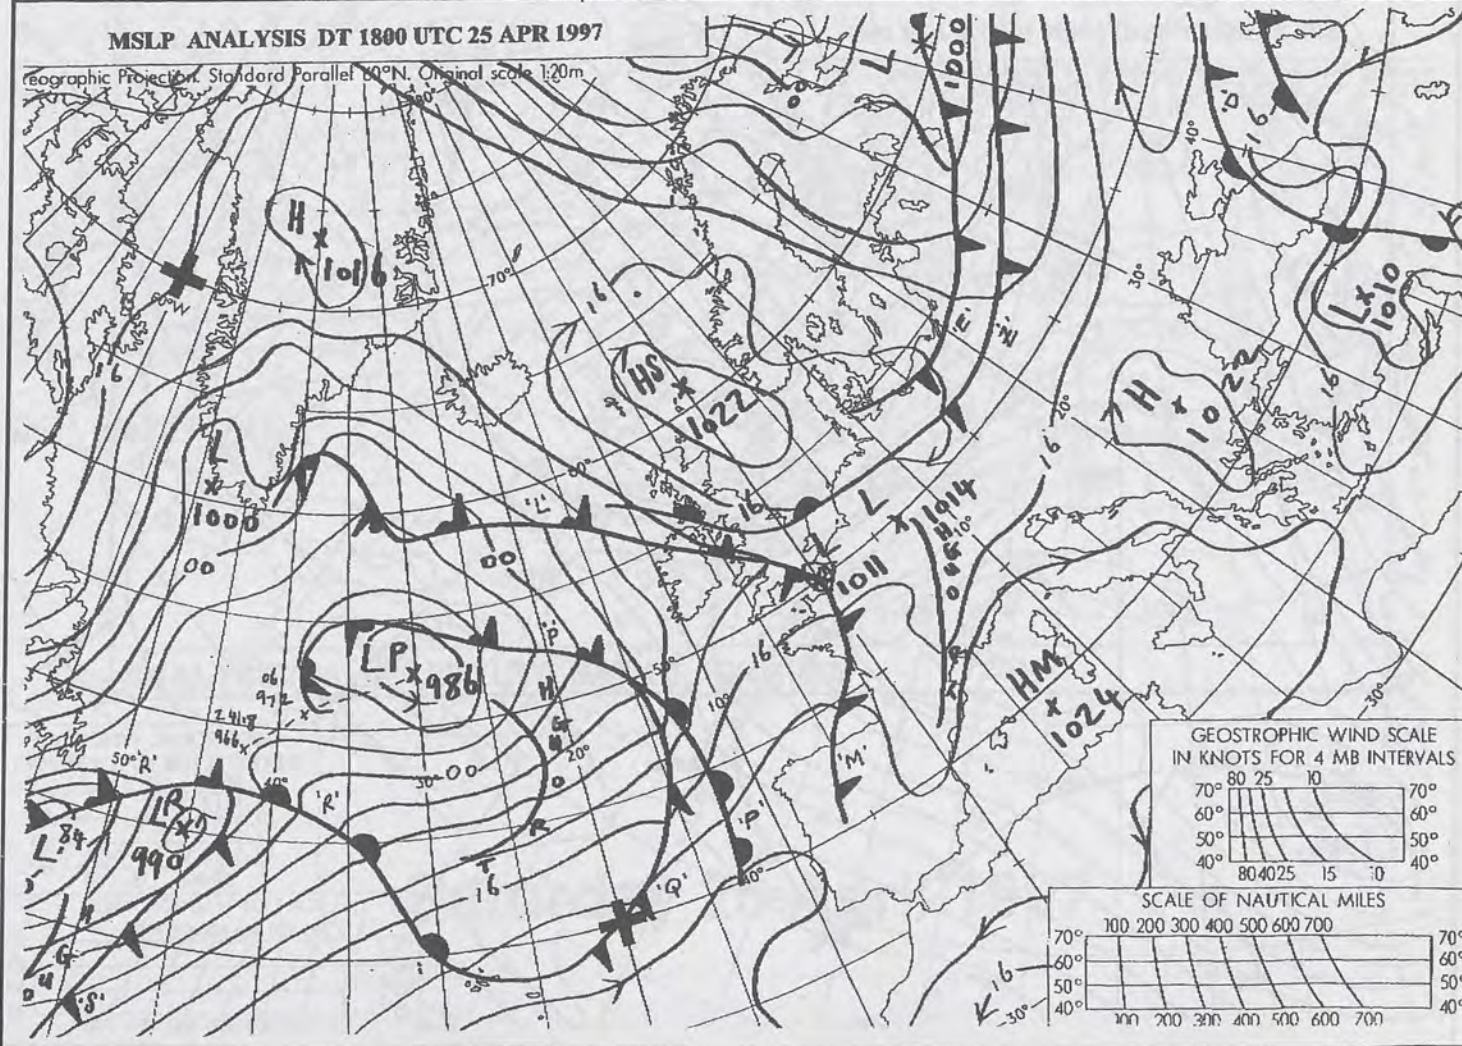 MSLP ANALYSIS DT 1800 UTC 25 APR 1997
eographic Projection. Standard Parallel 60°N. Original scale 1:20m
80°
L
1000
00
40°
'P'
16
H
1016
70°
60°W
16
16
HS
1022
'E'
'N'
30°
L
1010
16
H
1022
20°
16
L
1000
'L'
60°
16
L
1014
10°
L
1011
00
00
LP
986
06
972
24/18
966
'P'
50°
10°
16
'M'
HM
1024
30°
50°
'R'
40°
'R'
30°
00
20°
16
'P'
'Q'
40°
LP
990
L
84
'S'
16
30°
GEOSTROPHIC WIND SCALE
IN KNOTS FOR 4 MB INTERVALS
80 25 10
70° 70°
60° 60°
50° 50°
40° 40°
80 40 25 15 10
SCALE OF NAUTICAL MILES
100 200 300 400 500 600 700
70° 70°
60° 60°
50° 50°
40° 40°
100 200 300 400 500 600 700